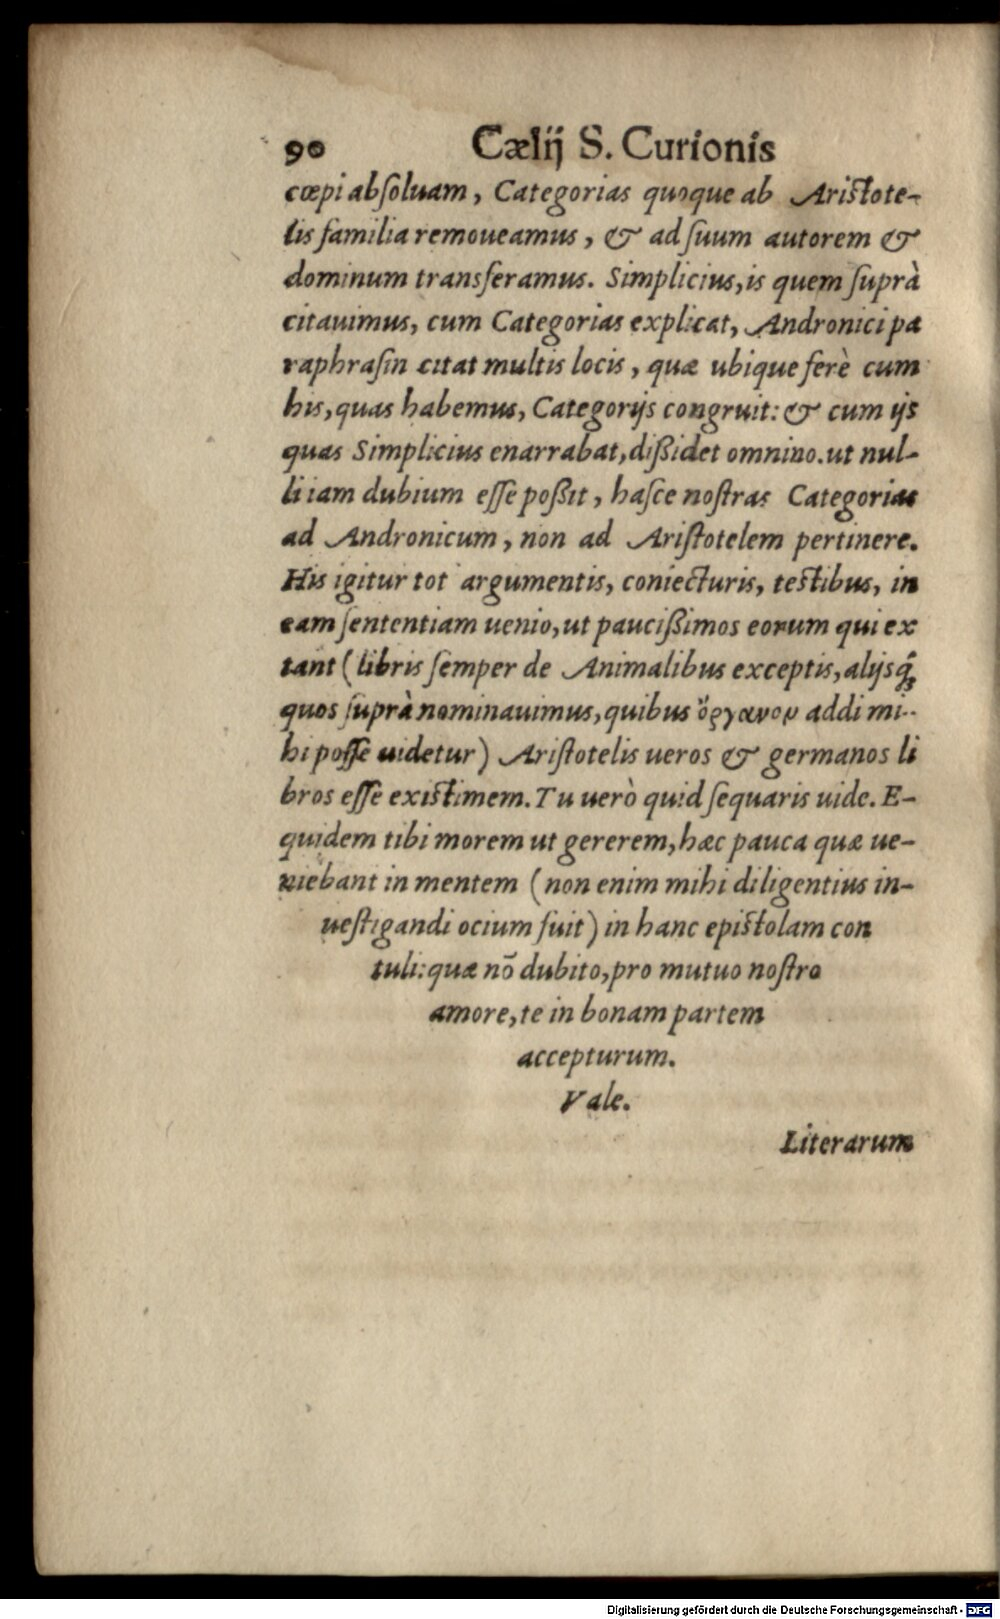 90 Cælij S. Curionis
cœpi absoluam, Categorias quoque ab Aristote-
lis familia remoueamus, & ad suum autorem &
dominum transferamus. Simplicius, is quem suprà
citauimus, cum Categorias explicat, Andronici pa
raphrasin citat multis locis, quæ ubique ferè cum
his, quas habemus, Categorijs congruit: & cum ijs
quas Simplicius enarrabat, dißidet omnino. ut nul-
li iam dubium esse poßit, hasce nostras Categorias
ad Andronicum, non ad Aristotelem pertinere.
His igitur tot argumentis, coniecturis, testibus, in
eam sententiam uenio, ut paucißimos eorum qui ex
tant (libris semper de Animalibus exceptis, alijsq́;
quos suprà nominauimus, quibus ὄργανον addi mi-
hi posse uidetur) Aristotelis ueros & germanos li
bros esse existimem. Tu uerò quid sequaris uide. E-
quidem tibi morem ut gererem, hæc pauca quæ ue-
niebant in mentem (non enim mihi diligentius in-
uestigandi ocium fuit) in hanc epistolam con
tuli: quæ nō dubito, pro mutuo nostro
amore, te in bonam partem
accepturum.
Vale.
Literarum
Digitalisierung gefördert durch die Deutsche Forschungsgemeinschaft - DFG